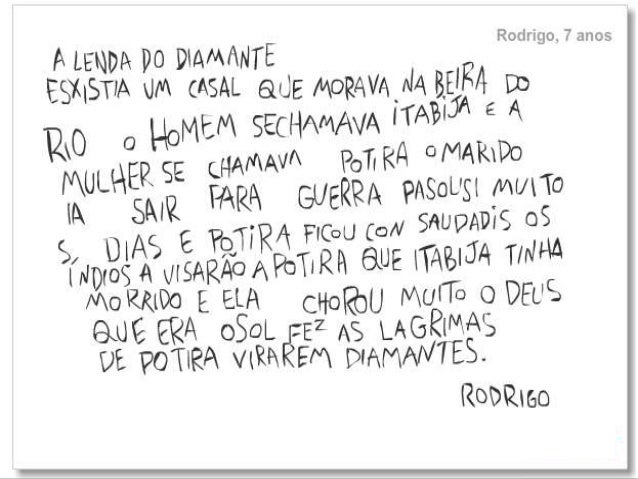 Rodrigo, 7 anos
A LENDA DO DIAMANTE
ESXISTIA UM CASAL QUE MORAVA NA BEIRA DO
RIO O HOMEM SECHAMAVA ITABIJA E A
MULHER SE CHAMAVA POTIRA O MARIDO
IA SAIR PARA GUERRA PASOL'SI MUITO
S, DIAS E POTIRA FICOU CON SAUDADIS OS
ÍNDIOS A VISARÃO A POTIRA QUE ITABIJA TINHA
MORRIDO E ELA CHOROU MUITO O DEUS
QUE ERA OSOL FEZ AS LAGRIMAS
DE POTIRA VIRAREM DIAMANTES.
RODRIGO